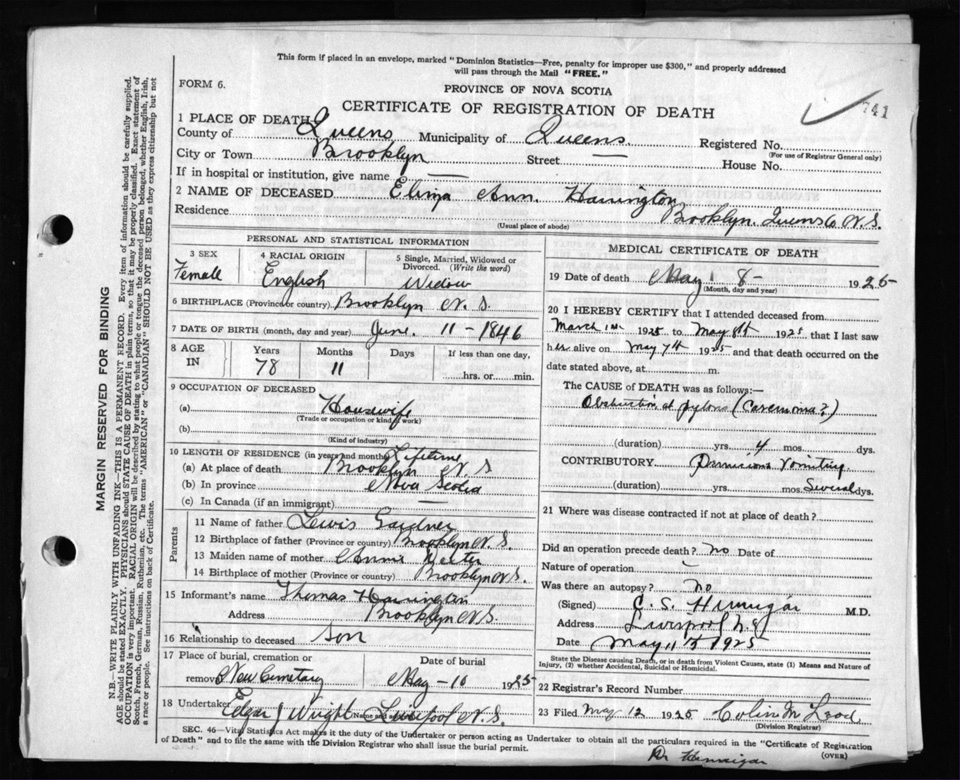 This form if placed in an envelope, marked "Dominion Statistics—Free, penalty for improper use $300," and properly addressed
will pass through the Mail "FREE."
FORM 6.
PROVINCE OF NOVA SCOTIA
CERTIFICATE OF REGISTRATION OF DEATH
741
1 PLACE OF DEATH
County of Queens Municipality of Queens. Registered No.
(For use of Registrar General only)
City or Town Brooklyn Street — House No.
If in hospital or institution, give name —
2 NAME OF DECEASED Eliza Ann. Harrington
Residence Brooklyn. Queens Co N.S.
(Usual place of abode)
PERSONAL AND STATISTICAL INFORMATION
3 SEX Female
4 RACIAL ORIGIN English
5 Single, Married, Widowed or Divorced. (Write the word) Widow
6 BIRTHPLACE (Province or country) Brooklyn N.S.
7 DATE OF BIRTH (month, day and year) June. 11 - 1846
8 AGE IN Years 78 Months 11 Days If less than one day, hrs. or min.
9 OCCUPATION OF DECEASED
(a) Housewife
(Trade or occupation or kind of work)
(b)
(Kind of industry)
10 LENGTH OF RESIDENCE (in years and months) Lifetime
(a) At place of death Brooklyn N.S
(b) In province Nova Scotia
(c) In Canada (if an immigrant) —
Parents
11 Name of father Lewis Gardner
12 Birthplace of father (Province or country) Brooklyn N.S.
13 Maiden name of mother Annie
14 Birthplace of mother (Province or country) Brooklyn N.S.
15 Informant's name Thomas Harrington
Address Brooklyn N.S.
16 Relationship to deceased Son
17 Place of burial, cremation or removal New Cemetary Date of burial May - 10 1925
18 Undertaker Edgar J Wright (Name and address) Liverpool N.S.
MEDICAL CERTIFICATE OF DEATH
19 Date of death May 8 - 1925
(Month, day and year)
20 I HEREBY CERTIFY that I attended deceased from
March 1925 to May 8th 1925 that I last saw
her alive on May 7th 1925 and that death occurred on
date stated above, at m.
The CAUSE of DEATH was as follows:—
Obstruction at pylorus (Carcinoma?)
(duration) yrs. 4 mos. dys.
CONTRIBUTORY Pernicious Vomiting
(duration) yrs. mos. Several dys.
21 Where was disease contracted if not at place of death?
Did an operation precede death? No Date of
Nature of operation
Was there an autopsy? No
(Signed) M.D.
Address Liverpool N.S
Date May 11th 1925
State the Disease causing Death, or in death from Violent Causes, state (1) Means and Nature of
Injury, (2) whether Accidental, Suicidal or Homicidal.)
22 Registrar's Record Number
23 Filed May 12 1925 Colin McLeod
(Division Registrar)
SEC. 46—Vital Statistics Act makes it the duty of the Undertaker or person acting as Undertaker to obtain all the particulars required in the "Certificate of Registration
of Death" and to file the same with the Division Registrar who shall issue the burial permit.
(OVER)
Dr Hennigar
MARGIN RESERVED FOR BINDING
N.B.—WRITE PLAINLY WITH UNFADING INK—THIS IS A PERMANENT RECORD. Every item of information should be carefully supplied.
AGE should be stated EXACTLY. PHYSICIANS should STATE CAUSE OF DEATH in plain terms, so that it may be properly classified. Exact statement of
OCCUPATION is very important. RACIAL ORIGIN will be described by stating to what people or tongue the deceased person belonged, whether English, Irish,
Scotch, French, German, Russian, Ruthenian, etc. The terms "AMERICAN" or "CANADIAN" SHOULD NOT BE USED as they express citizenship but not
a race or people. See instructions on back of Certificate.